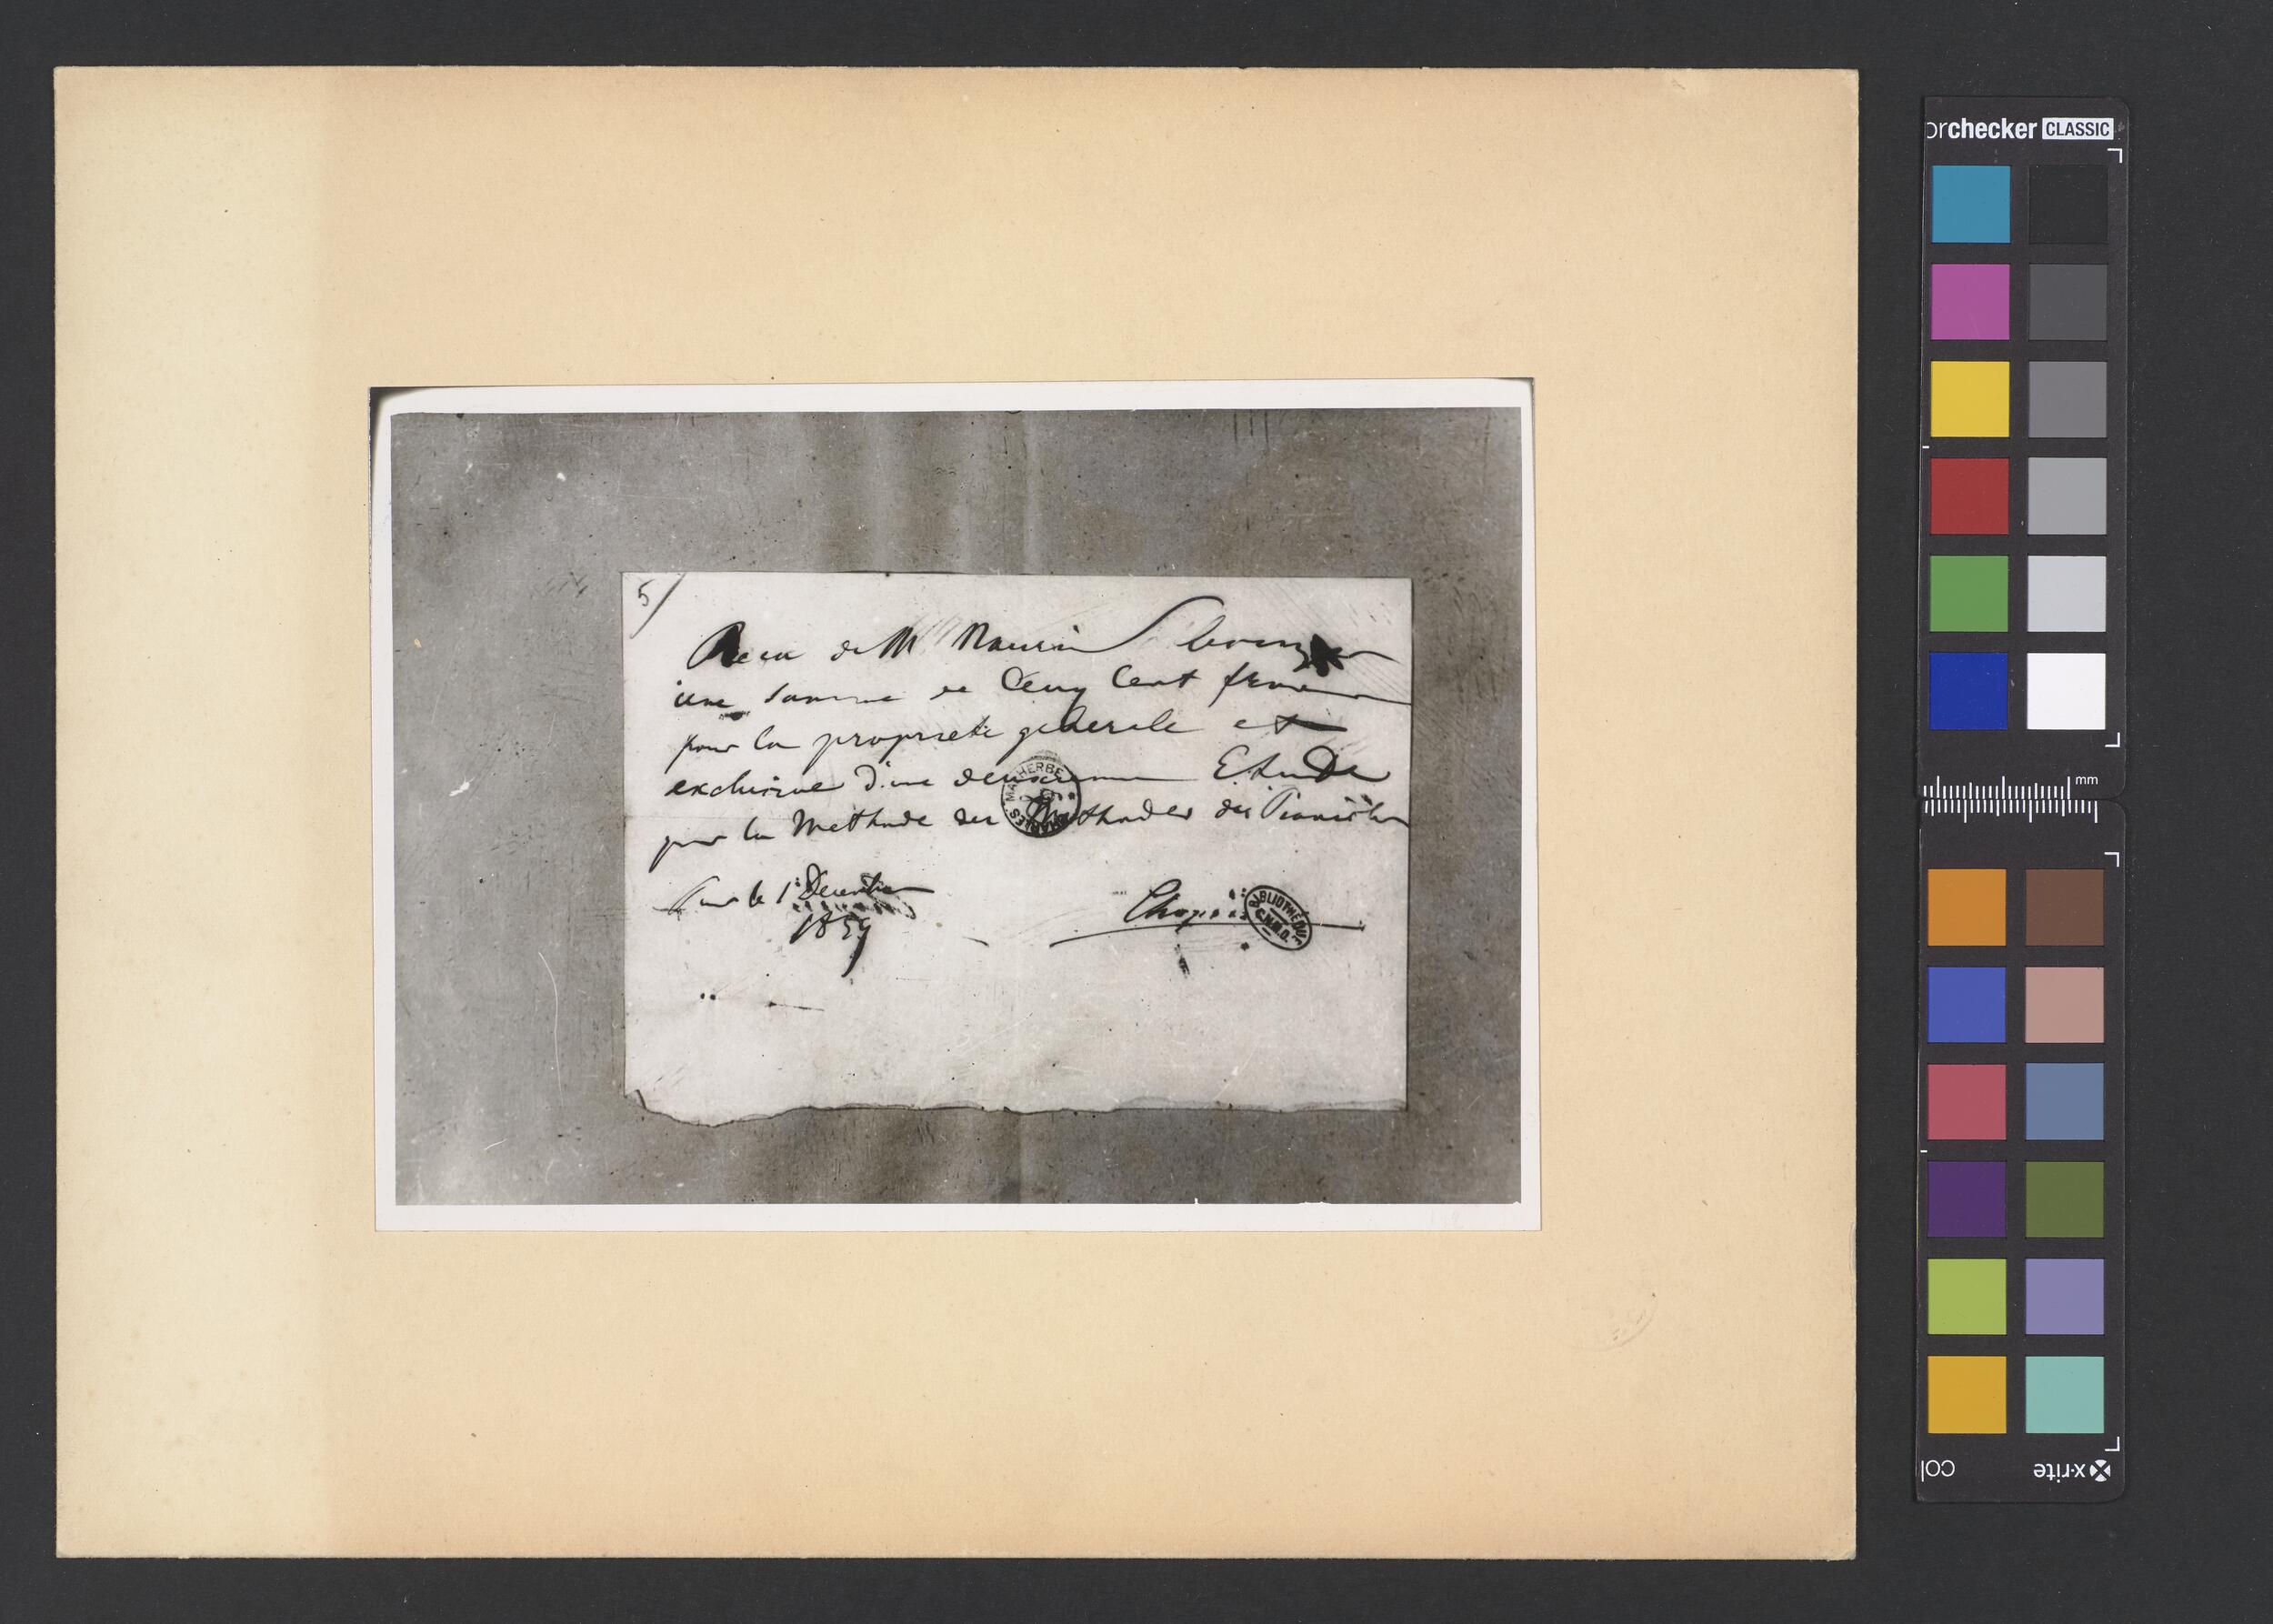 5/
Recu de M Maurice Schlesinger
une somme de Cinq Cent francs
pour la propriete generale et
exclusive d'une deuxieme Etude
pour la Methode des Methodes des Pianistes
Paris le 1 Decembre
1839
Chopin
CHARLES MALHERBE
BIBLIOTHÈQUE
C.N.M.D.
orchecker CLASSIC
mm
col
x-rite